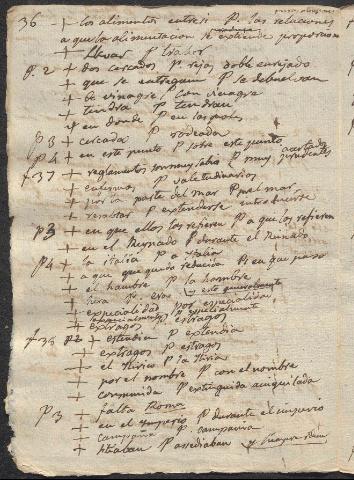 36 + los alimentos entre si P. las relaciones
a que la alimentacion se extiende proporcion
+ llevar P traher
p. 2 + dos cercados P rejas doble enrejado
+ que se entreguen P se debuelvan
+ de vinagre P con vinagre
+ tendra P tendran
+ en donde P en las quales
p 3 + cercada P rodeada
p 4 + en este punto P sobre este punto
f 37 + reglamentos son muy sabios P muy prudentes acertados
+ enfermos P valetudinarios
+ por la parte del mar P por el mar
+ P extenderse introducirse
p 3 + en que ellos las refieren P a que las refieren
+ en el Reynado P durante el Reynado
p 4 + la italia P a Italia
+ a que quedo reducida P en que paro
+ el hambre P la hambre
+ P eras este quebrantante
+ especialidad por especialidad
especialmente P especialmente
+ extragos P estragos
f 38 p 2 + estendia P extendia
+ extragos P estragos
+ el Ilirico P la Iliria
+ por el nombre P con el nombre
+ consumida P extinguida aniquilada
p 3 + falta Roma
+ en el Imperio P durante el imperio
+ campaña P. campania
+ sitiaban P assediaban